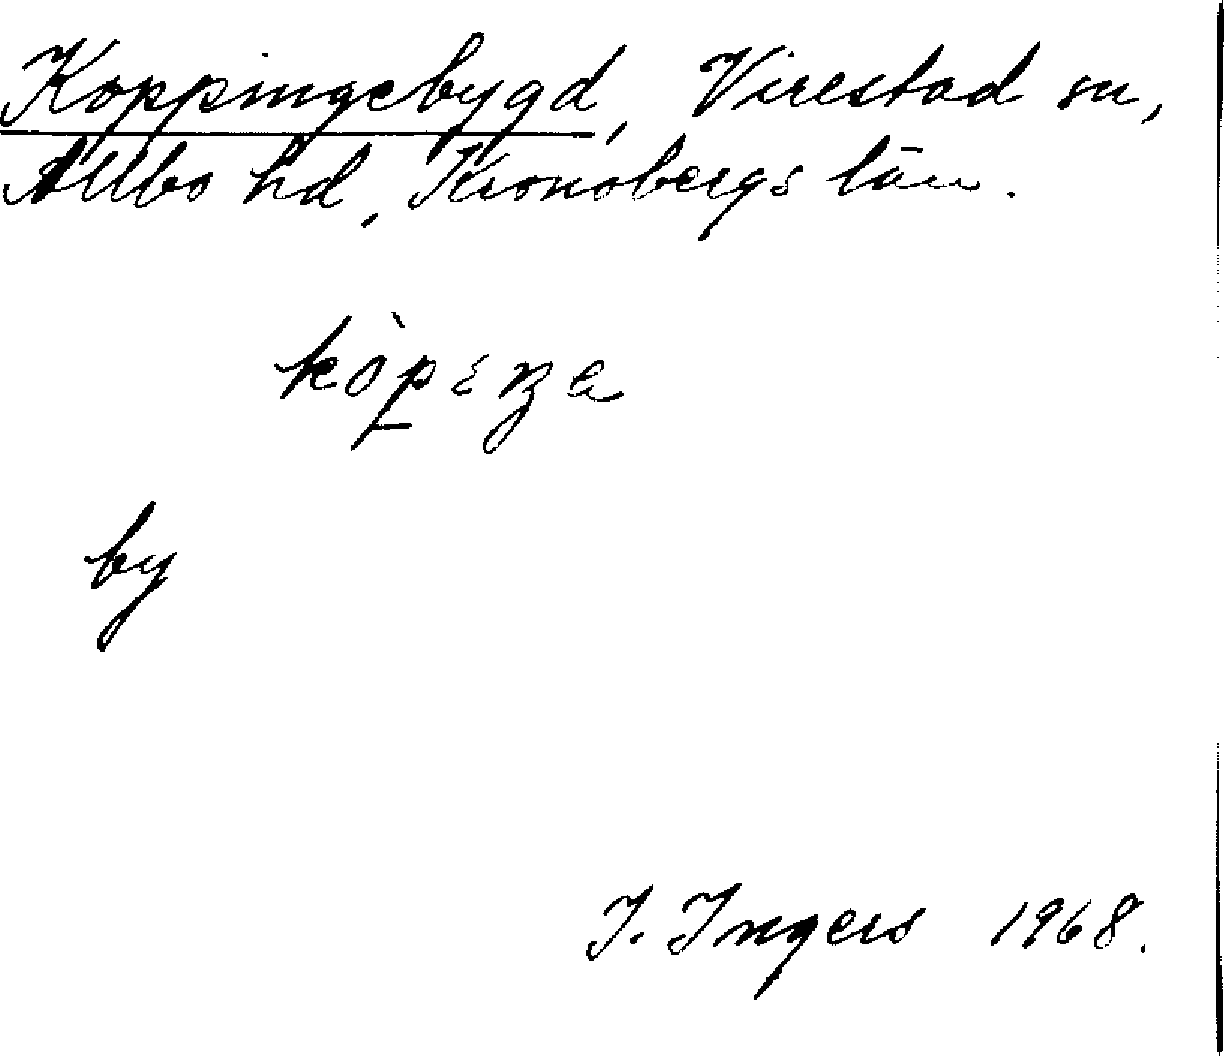 Koppingebygd, Virestad sn,
Allbo hd, Kronobergs län.
by
I. Ingers 1968.